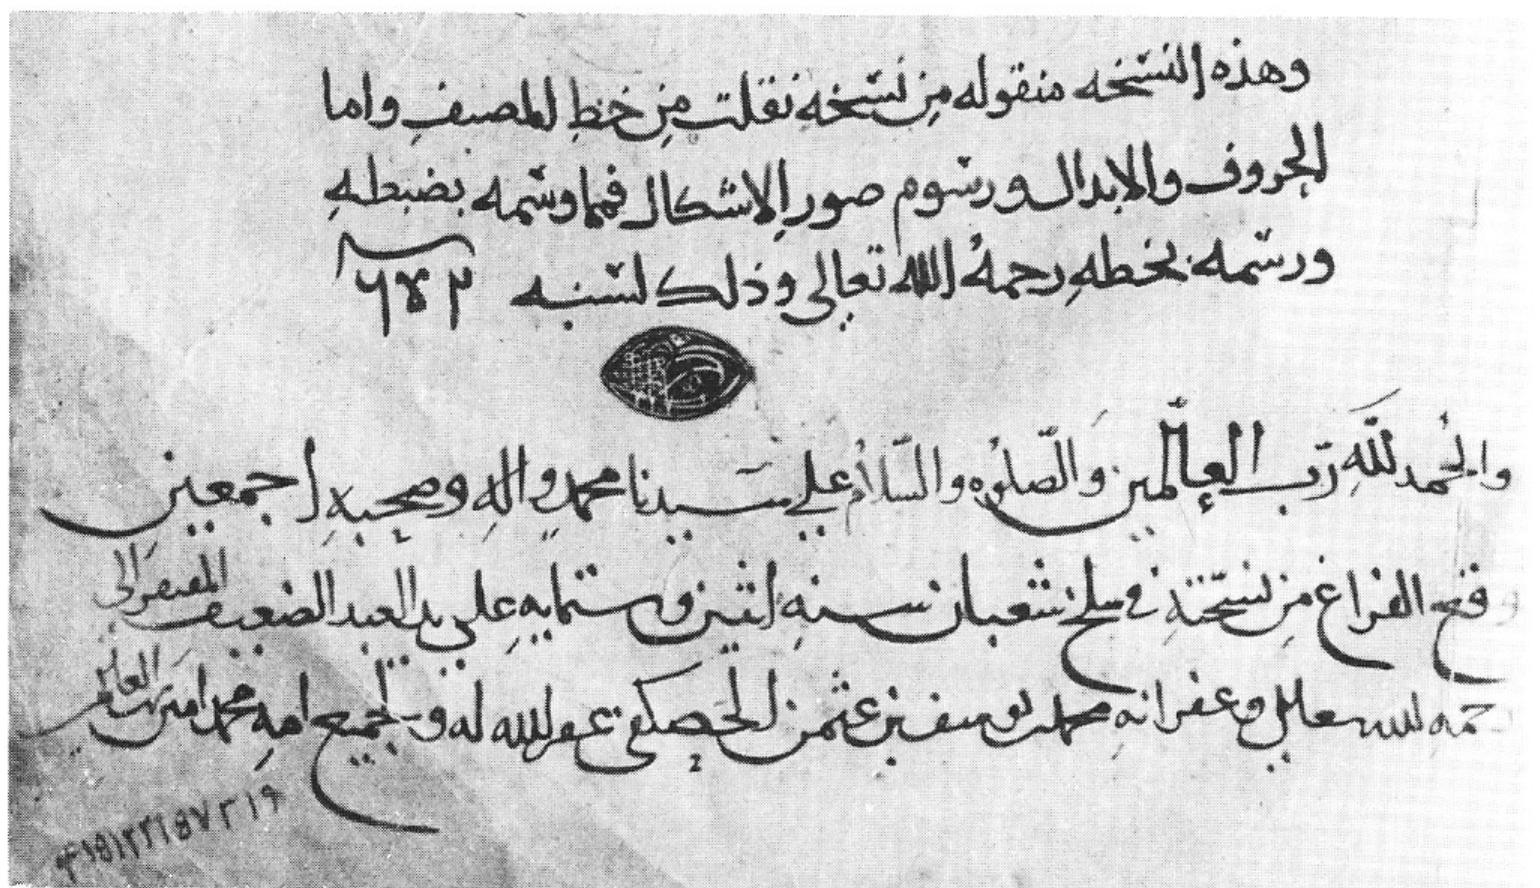 وهذه النسخه منقوله من نسخه نقلت من خط المصنف واما
الحروف والابدال ورسوم صور الاشكال فمما وسمه بضبطه
ورسمه بخطه رحمه الله تعالى وذلك لسنه
والحمد لله رب العالمين والصلوه والسلام على سيدنا محمد واله وصحبه اجمعين
وقع الفراغ من نسخته في سلخ شعبان سنه اثنين وستمايه على يد العبد الضعيف المفتقر الى
رحمه الله تعالى وغفرانه محمد بن يوسف بن عثمن الحصكفى غفر الله له ولجميع امه محمد امين